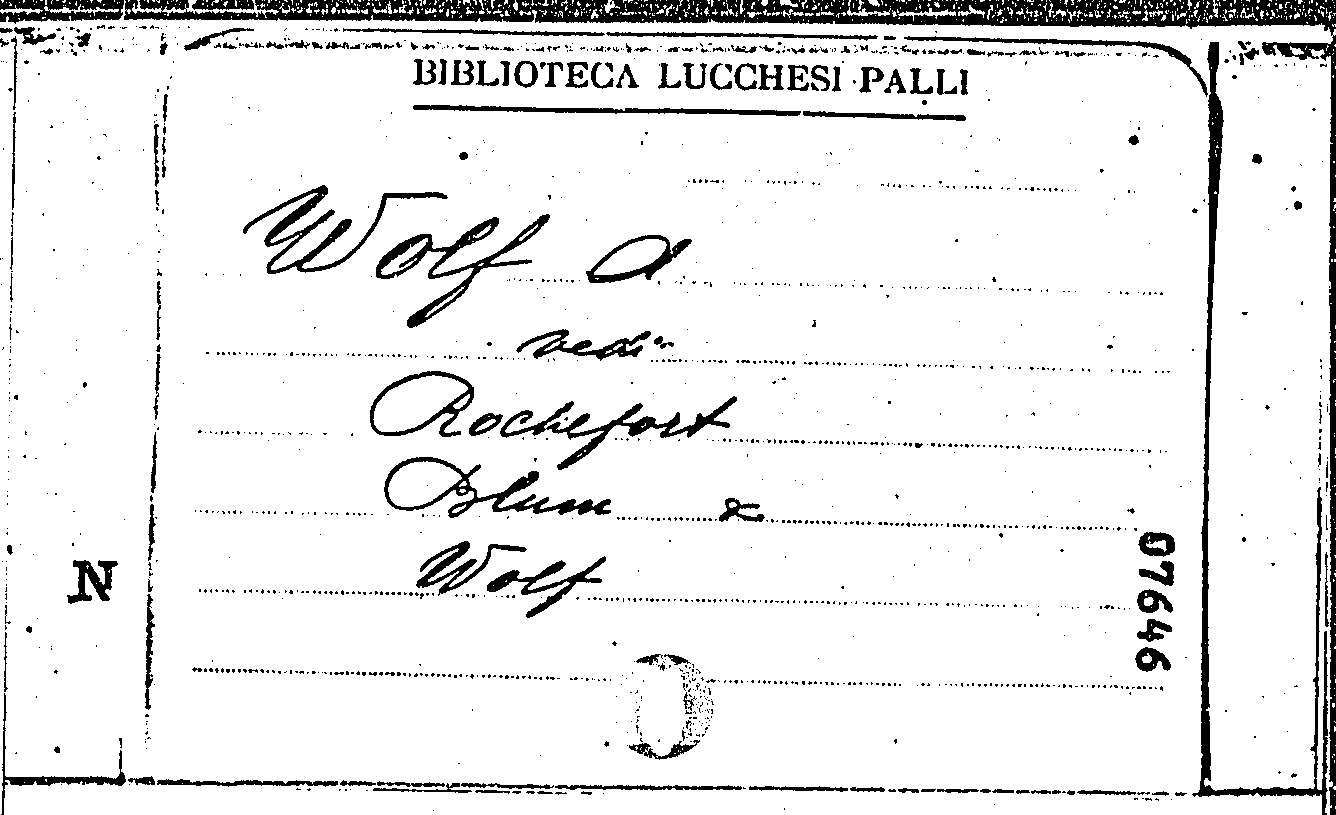 BIBLIOTECA LUCCHESI-PALLI
Wolf A
vedi
Rochefort
Blum &
Wolf
N
07646